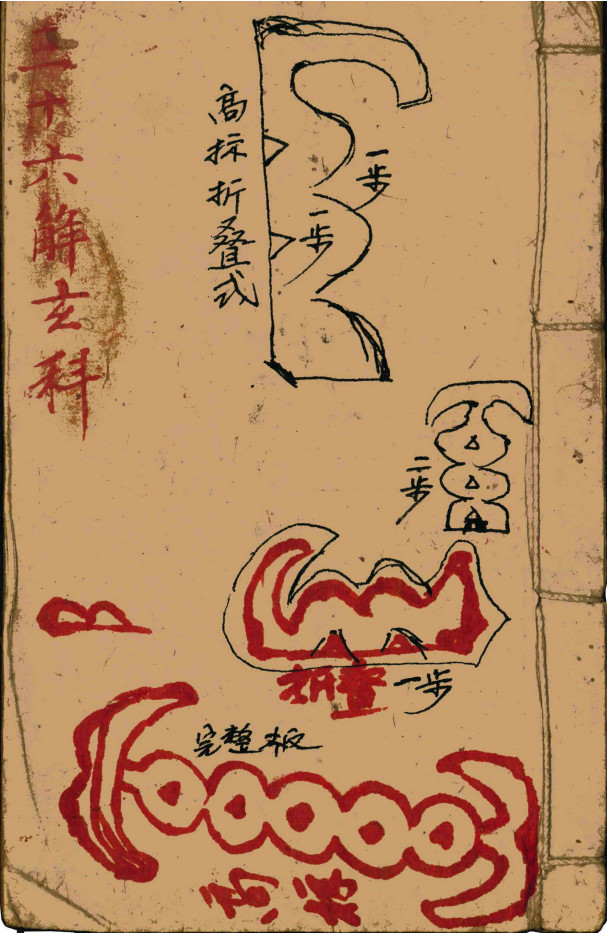 三十六解玄科
高标折叠式
一步
一步
二步
折叠一步
完整板
高标